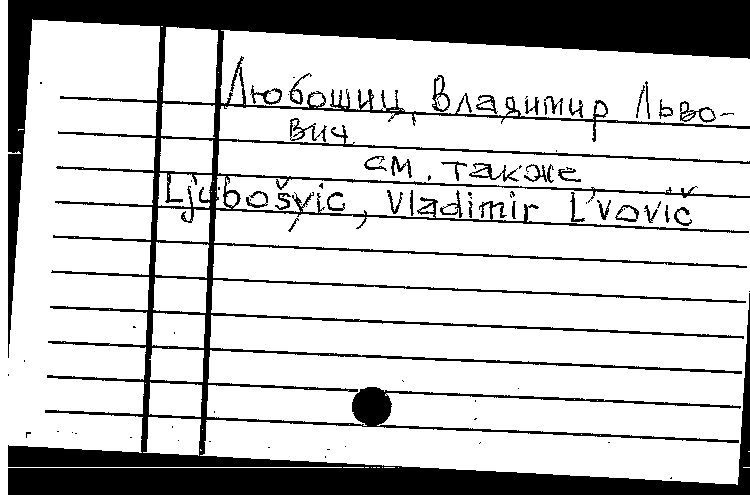 Любошиц, Владимир Льво-
вич
см. также
Ljubošyic, Vladimir L'vovič